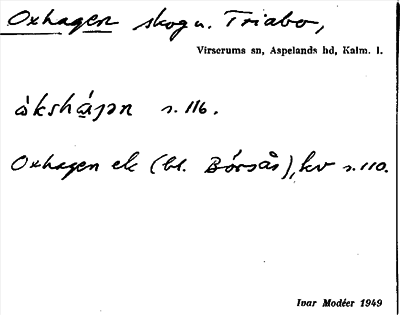 Oxhagen skog u. Triabo,
Virserums sn, Aspelands hd, Kalm. l.
àkshá̱ɡən s. 116.
Oxhagen ek (bl. Börsås), kv s. 110.
Ivar Modéer 1949